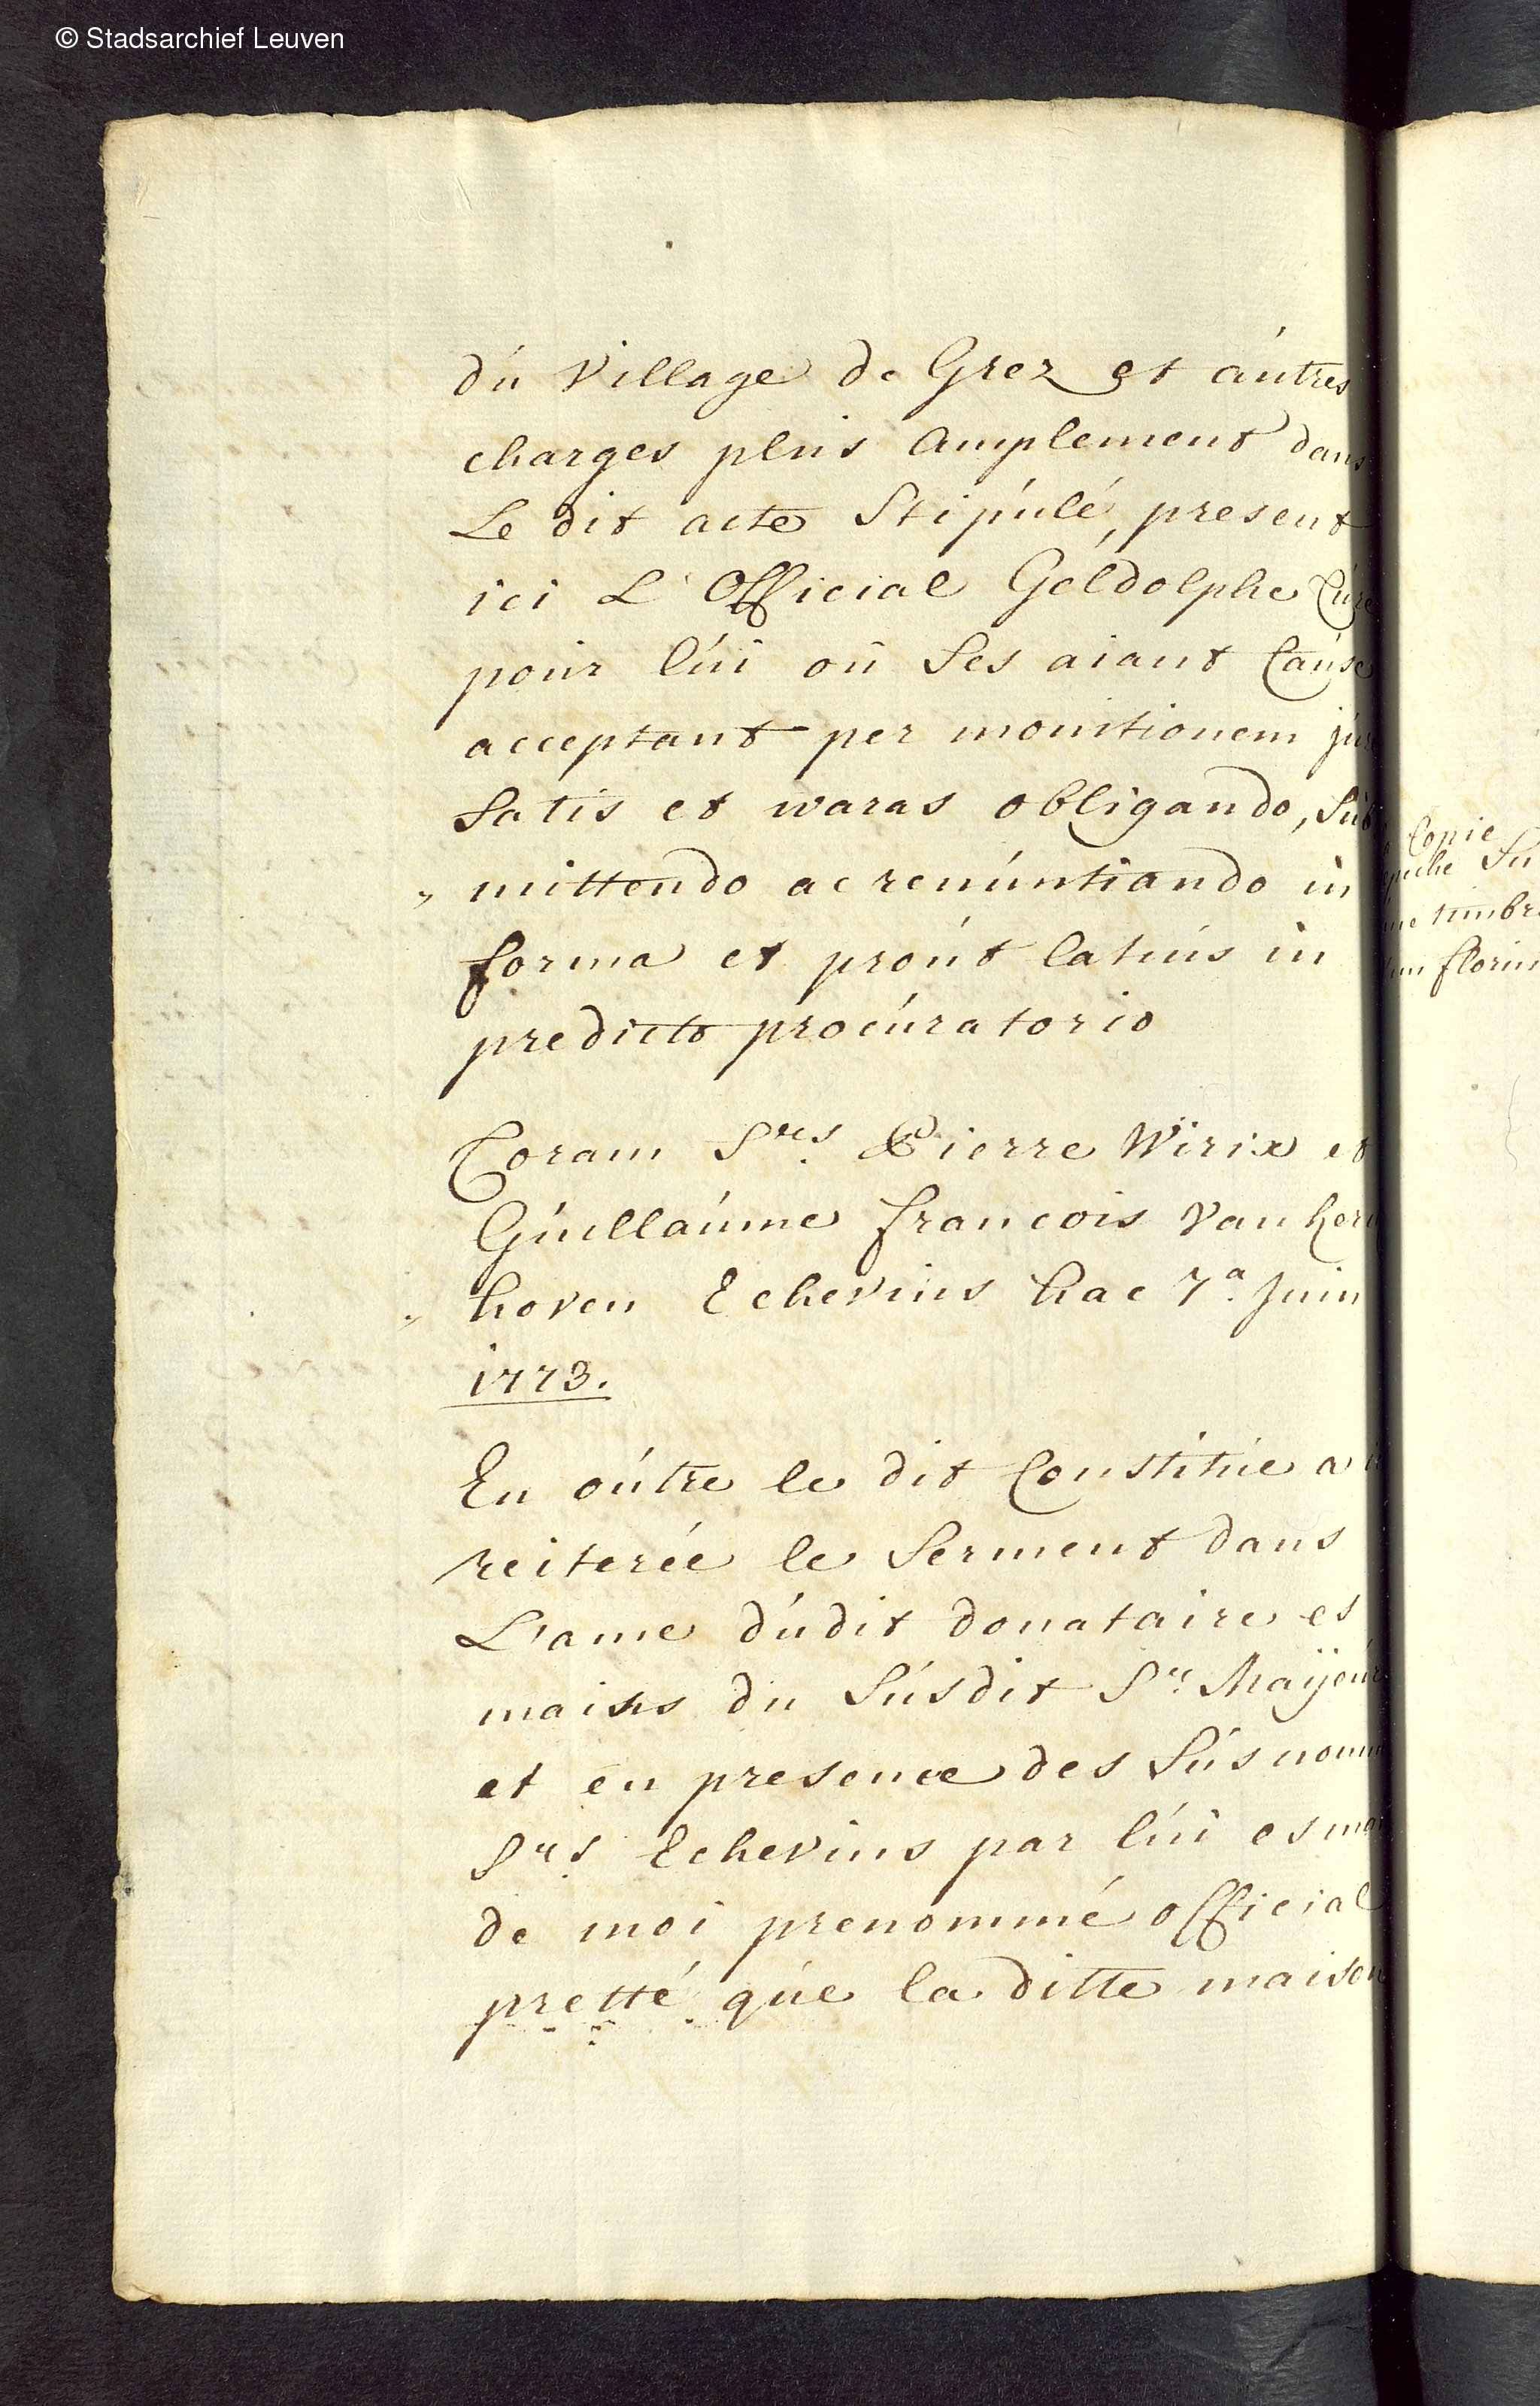 © Stadsarchief Leuven
dú Village de Grez et aútres
charges plus Amplement dans
Le dit acte Stipúlé, present
ici L'Official Géldolphe Cúre
poúr lúi oú Ses aiant Caúse
acceptant per monitionem júre
Satis et waras obligando, Súb
„ mittendo ac renúntiando in
forma et proút latiús in
predicto procúratorio
Coram Srs. Pierre Wirix et
Gúillaúme francois Van
„ hoven Echevins hac 7a. Juin
1773.
En oútre le dit Constitúe a
reiterée le Serment dans
L'ame dúdit donataire es
mains du Súsdit Sr. Maÿeúr
et en presence des Súsnom
Srs Echevins par lúi es
de moi prenommé official
pretté qúe la ditte maison
Copie
Su
timbr
florin